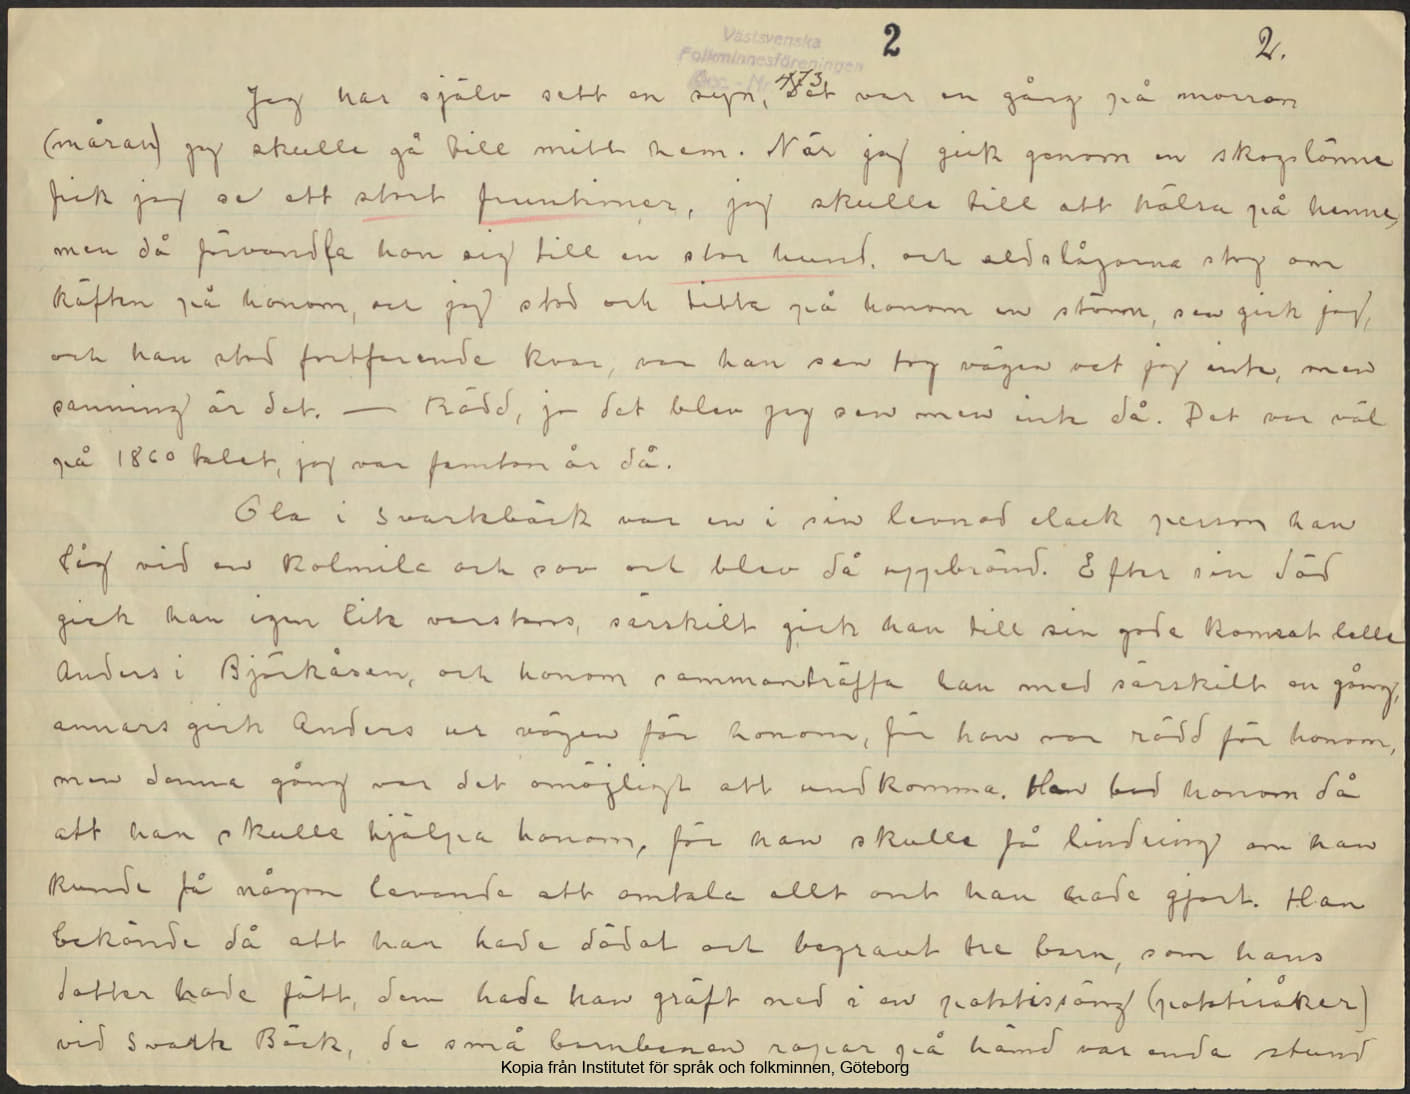 Västsvenska
Folkminnesföreningen
Acc. - Nr 473
2
2.
Jag har själv sett en syn, Det var en gång på morron
(måran) jag skulle gå till mitt hem. När jag gick genom en skogslänna
fick jag se ett stort fruntimer, jag skulle till att hälsa på henne,
men då förvandla hon sig till en stor hund. och eldslågorna stog om
käften på honom, och jag stod och titta på honom en stönn, sen gick jag,
och han stod fortfarende kvar, var han sen tog vägen vet jag inte, men
sanning är det. — Rädd, ja det blev jag sen men inte då. Det var väl
på 1860 talet, jag var femton år då.
Ola i Svartbäck var en i sin levnad elack person han
låg vid en kolmila och sov och blev då uppbränd. Efter sin död
gick han igen lite varstans, särskilt gick han till sin goda komrat lelle
Anders i Björkåsen, och honom sammanträffa han med särskilt en gång,
annars gick Anders ur vägen för honom, för han var rädd för honom,
men denna gång var det omöjligt att undkomma. Han bad honom då
att han skulle hjälpa honom, för han skulle få lindring om han
kunde få någon levande att omtala allt ont han hade gjort. Han
bekände då att han hade dödat och begravt tre barn, som hans
dotter hade fått, dem hade han gräft ned i en pottissäng (pottisåker)
vid Svarte Bäck, de små barnbenen ropar på hämd varenda stund
Kopia från Institutet för språk och folkminnen, Göteborg